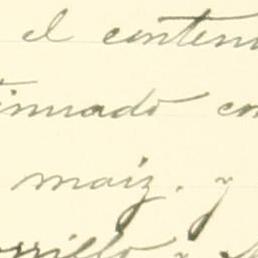 el conten
inuado con
maiz. y
orrillo y